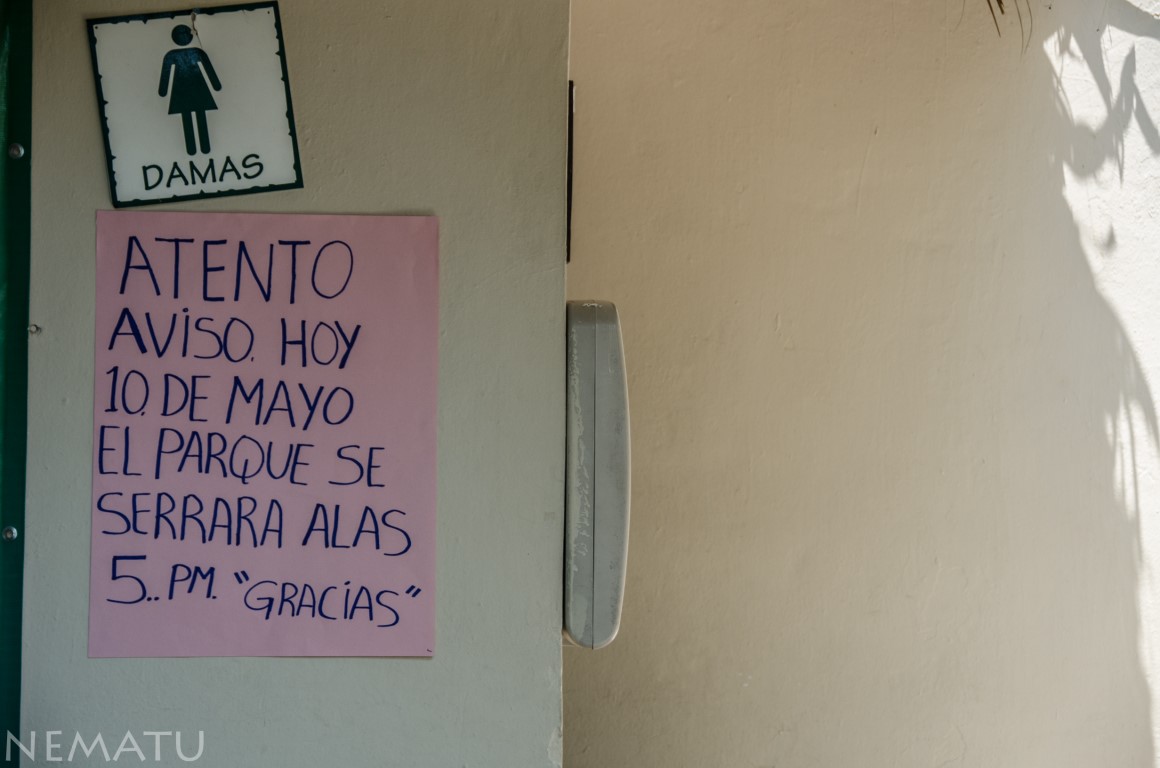 DAMAS
ATENTO
AVISO. HOY
10. DE MAYO
EL PARQUE SE
SERRARA ALAS
5.. PM. "GRACIAS"
NEMATU